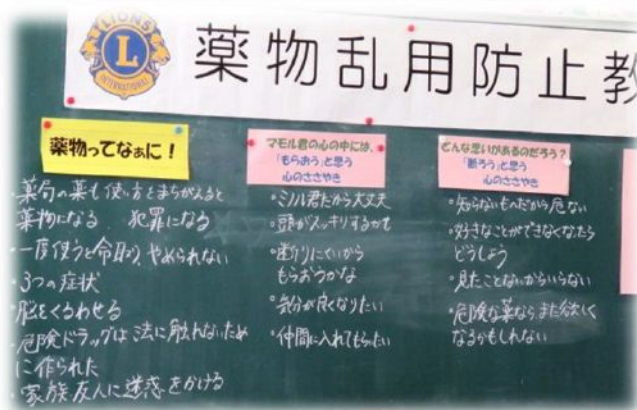 LIONS
L
INTERNATIONAL
薬物乱用防止教
薬物ってなぁに!
・薬局の薬も使い方をまちがえると
薬物になる 犯罪になる
・一度使うと命取り、やめられない
・3つの症状
・脳をくるわせる
・危険ドラッグは法に触れないため
に作られた
・家族友人に迷惑をかける
マモル君の心の中には、
「もらおう」と思う
心のささやき
・ミノル君だから大丈夫
・頭がスッキリするかも
・断りにくいから
もらおうかな
・気分が良くなりたい
・仲間に入れてもらいたい
どんな思いがあるのだろう?
「断ろう」と思う
心のささやき
・知らないものだから危ない
・好きなことができなくなったら
どうしよう
・見たことないからいらない
・危険な薬ならまた欲しく
なるかもしれない